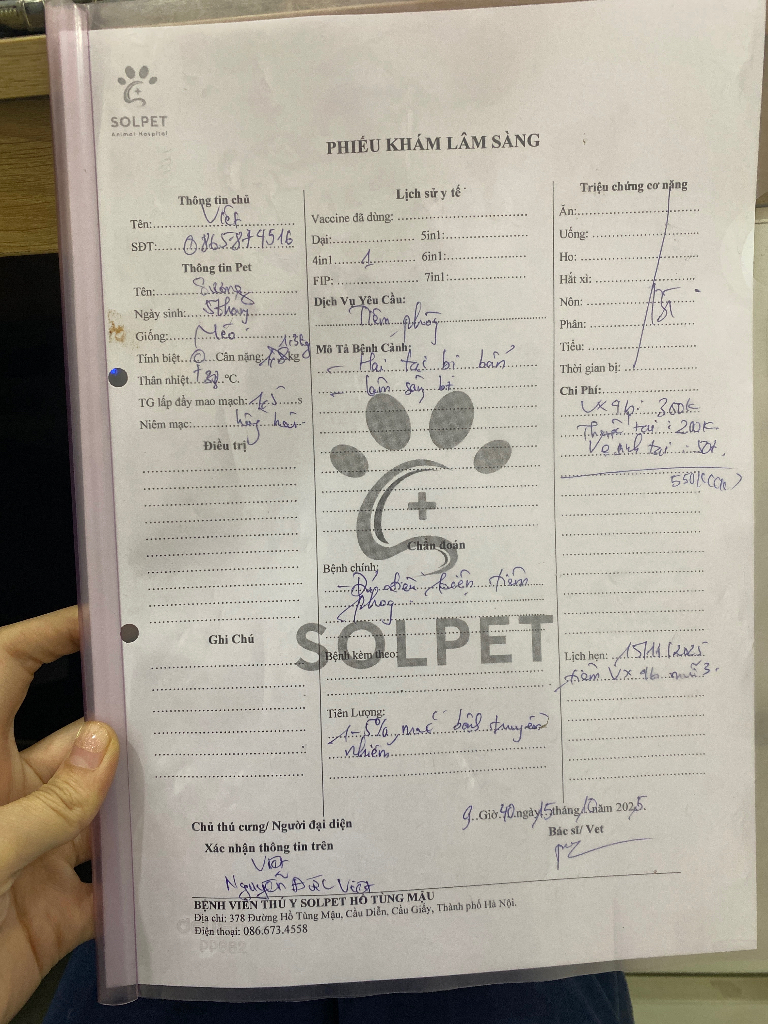 SOLPET
Animal Hospital
PHIẾU KHÁM LÂM SÀNG
Thông tin chủ
Tên: Việt
SĐT: 0865874516
Thông tin Pet
Tên:
Ngày sinh: 5 tháng
Giống: Mèo
Tính biệt: Cân nặng: kg
Thân nhiệt: °C.
TG lấp đầy mao mạch: s
Niêm mạc: hồng
Điều trị
Ghi Chú
Lịch sử y tế
Vaccine đã dùng:
Dại: 5in1:
4in1 1 6in1:
FIP: 7in1:
Dịch Vụ Yêu Cầu:
Tiêm phòng
Mô Tả Bệnh Cảnh:
- Hai tai bị bẩn
- lâm sàng bt
Chẩn đoán
Bệnh chính:
- Đủ điều kiện tiêm
phòng
SOLPET
Bệnh kèm theo:
Tiên Lượng:
1-5% mắc bệnh truyền
nhiễm
Triệu chứng cơ năng
Ăn:
Uống:
Ho:
Hắt xì:
Nôn:
Phân:
Tiểu:
Thời gian bị:
Chi Phí:
VX 4b: 300K
Thuốc tai: 200K
Vệ sinh tai:
550K
Lịch hẹn: 15/11/2025
tiêm VX 4b mũi 3.
9 Giờ 40 ngày 15 tháng 10 năm 2025.
Bác sĩ/ Vet
Chủ thú cưng/ Người đại diện
Xác nhận thông tin trên
Việt
Nguyễn Đức Việt
BỆNH VIỆN THÚ Y SOLPET HỒ TÙNG MẬU
Địa chỉ: 378 Đường Hồ Tùng Mậu, Cầu Diễn, Cầu Giấy, Thành phố Hà Nội.
Điện thoại: 086.673.4558